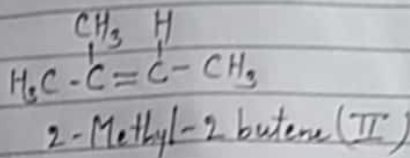 CH₃ H
H₃C - C = C - CH₃
2-Methyl-2 butene (II)